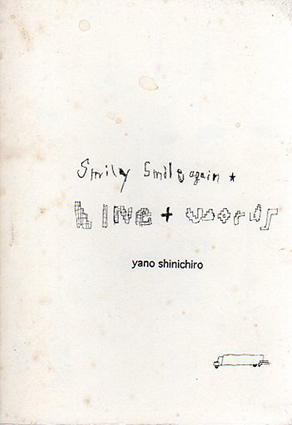 Smily Smily again ★
LINE + WORDS
yano shinichiro